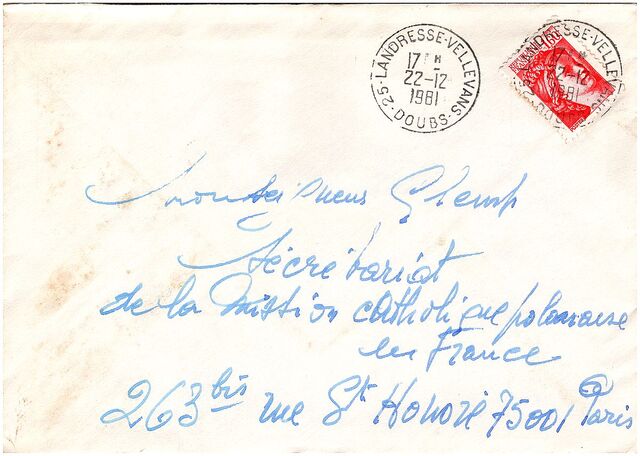 25-LANDRESSE-VELLEVANS
17H
22-12
1981
DOUBS
Monseigneur Glemp
Sécrétariat
de la Mission catholique polonaise
en France
263 bis rue St Honoré 75001 Paris